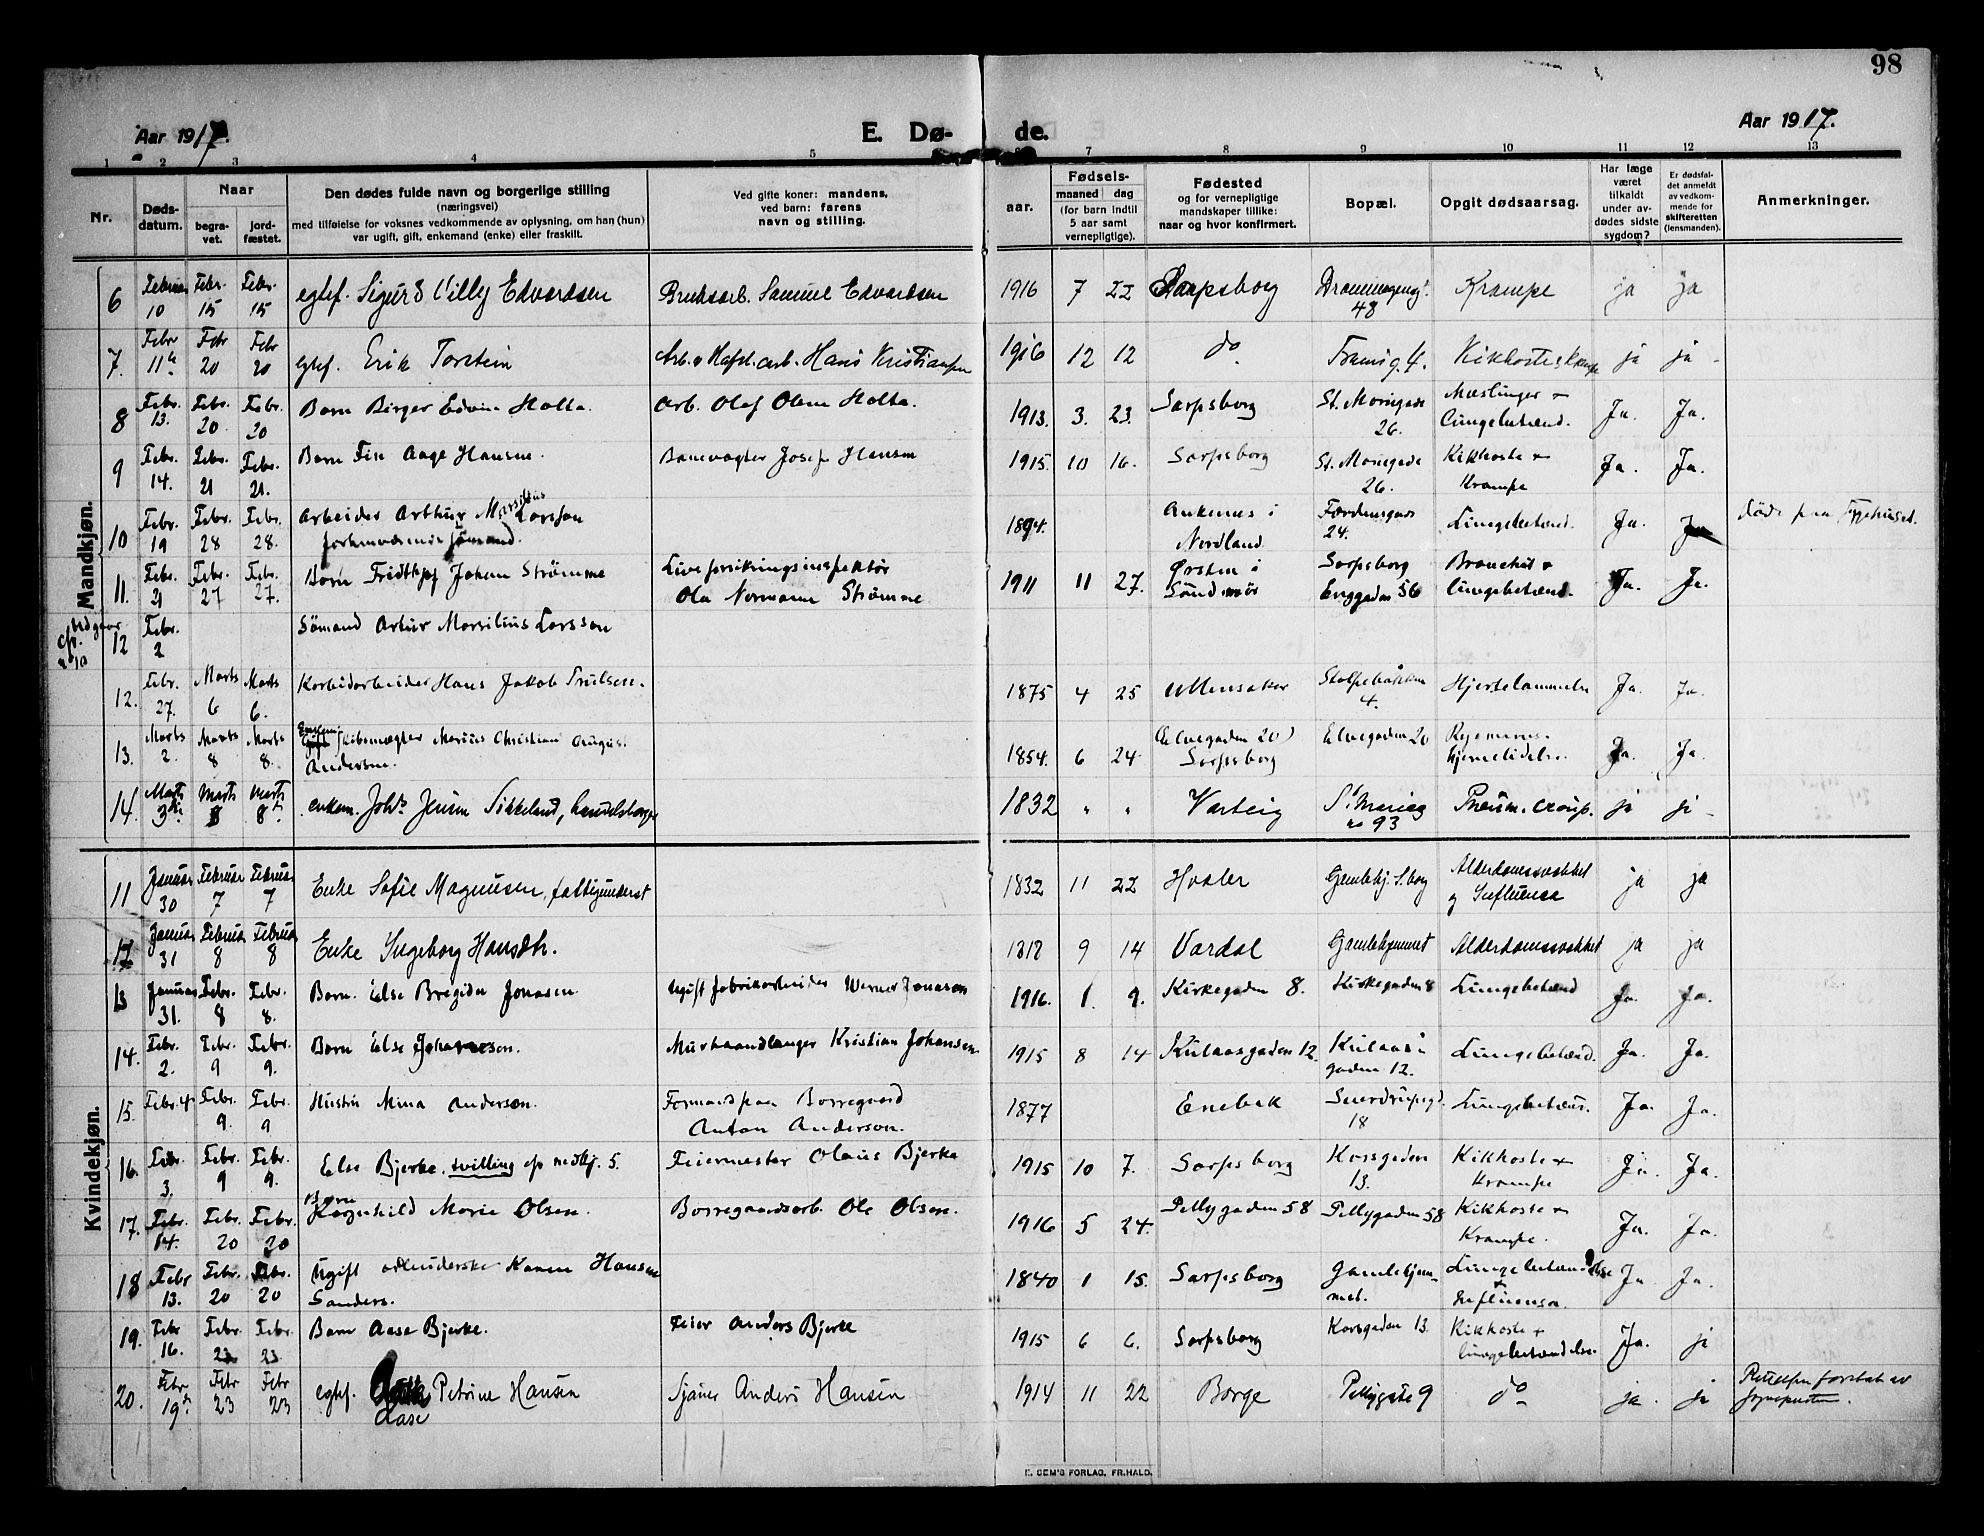 98
Aar 1917.
E. Dø- de.
Aar 1917.
1 2 3 4 5 7 8 9 10 11 12 13
Nr.
Døds-datum.
Naar
begra-vet.
jord-fæstet.
Den dødes fulde navn og borgerlige stilling
(næringsvei)
med tilføielse for voksnes vedkommende av oplysning, om han (hun)
var ugift, gift, enkemand (enke) eller fraskilt.
Ved gifte koner: mandens,
ved barn: farens
navn og stilling.
Fødsels-
aar.
maaned
dag
(for barn indtil
5 aar samt
vernepligtige).
Fødested
og for vernepligtige
mandskaper tillike:
naar og hvor konfirmert.
Bopæl.
Opgit dødsaarsag.
Har læge
været
tilkaldt
under av-
dødes sidste
sygdom?
Er dødsfal-
det anmeldt
av vedkom-
mende for
skifteretten
(lensmanden).
Anmerkninger.
Mandkjøn.
6 Februar 10 Febr. 15 Febr. 15 egtef. Sigurd Villy Edvardsen Bruksarb. Samuel Edvardsen 1916 7 22 Sarpsborg 48 Krampe ja ja
7. Febr 11te Febr 20 Febr 20 egtef. Erik Torstein Hans Kristiansen 1916 12 12 do 4. Kikhoste ja ja
8 Febr. 13. Febr. 20. Febr. 20 Barn Birger Edvin Holta. Arb. Olaf Olsen Holta. 1913. 3. 23. Sarpsborg St. Mariegade 26. Mæslinger + Lungebetænd. Ja. Ja.
9 Febr. 14. Febr. 21 Febr. 21. Barn Fin Aage Hansen. Banevogter Josef Hansen 1915. 10 16. Sarpsborg St. Mariegade 26. Kikhoste + Krampe Ja. Ja.
10 Febr. 19 Febr. 28 Febr. 28. Arbeider Arthur Marsilius Larsson forhenværende sjømand. 1894. Ankenes i Nordland. 24. Lungebetænd. Ja. Ja Døde paa Sygehuset.
11. Febr. 21 Febr. 27 Febr. 27. Barn Fridthjof Johan Strømme Livsforsikringsinspektør Ola Normann Strømme 1911 11 27. Ørsten i Søndmør Sarpsborg Enggaden 56 Bronchit + Lungebetænd. Ja. Ja.
Udgaar cfr. no 10 12 Febr. 2 Sømand Artur Marsilius Larsson
12. Febr. 27. Marts 6 Marts 6. Karbidarbeider Hans Jakob Trulsen. 1875 4 25 Ullensaker 4. Hjertelammelse Ja. Ja.
13. Marts 2. Marts 8 Marts 8. Marius Christian August Andersen. 1854. 6 24 (Elvegaden 20) Sarpsborg Elvegaden 20 Ja. Ja.
14. Marts 3die Marts 8 Marts 8de enkem. Johs Jensen Sikkeland, handelsborger 1832 " " Varteig St Marieg no 93 Pneum. croup. ja ja
Kvindekjøn.
11 Januar 30 Februar 7 Februar 7 Enke Sofie Magnussen, fattigunderst 1832 11 22 Hvaler Gamlehj. S.borg Alderdomssvakhet og Influensa ja ja
12 Januar 31 Februar 8 Februar 8 Enke Ingeborg Hansdtr. 1818 9 14 Vardal Gamlehjemmet Alderdomssvakhet ja ja
13 Januar 31. Febr. 8 Febr. 8. Barn. Else Bregida Jonasen. Ugift fabrikarbeider Werner Jonason 1916. 1. 9. Kirkegaden 8. Kirkegaden 8 Lungebetænd Ja. Ja.
14. Febr. 2. Febr. 9 Febr. 9. Barn Else Johansen. Murhaandlanger Kristian Johansen. 1915 8 14 Kulaasgaden 12. Kulaas-gaden 12. Lungebetænd. Ja. Ja.
15. Febr. 4 Febr. 9. Febr. 9 Hustru Mina Anderson. Formand paa Borregaard Anton Anderson. 1877 Enebak Sverdrupsgd. 18 Lungebetæn. Ja. Ja.
16. Febr. 3. Febr. 9 Febr. 9. Else Bjerke, tvilling cfr nedkj. 5. Feiermester Olaus Bjerke 1915 10 7. Sarpsborg Korsgaden 13. Kikhoste + Krampe Ja. Ja.
17. Febr. 14. Febr. 20 Febr. 20 Barn Ragnhild Marie Olsen. Borregaardsarb. Ole Olsen. 1916 5 24. Pellygaden 58 Pellygaden 58 Kikhoste + Krampe. Ja. Ja.
18 Febr 13. Febr. 20 Febr. 20 Ugift Karen Hansen Sanders. 1840 1 15. Sarpsborg Gamlehjem-met. Lungebetændelse + Influensa. Ja. Ja.
19. Febr 16. Febr. 23 Febr. 23. Barn Aase Bjerke. Feier Anders Bjerke 1915 6 6. Sarpsborg Korsgaden 13. Kikhoste + Lungebetændelse. Ja. ja
20. Febr 19de Febr 23 Febr 23 egtef. Aase Petrine Hansen Sjauer Anders Hansen 1914 11 22 Borge Pellygate 9 do ja. ja Rettelsen foretat av sognepresten.
E. SEM'S FORLAG, FR.HALD.